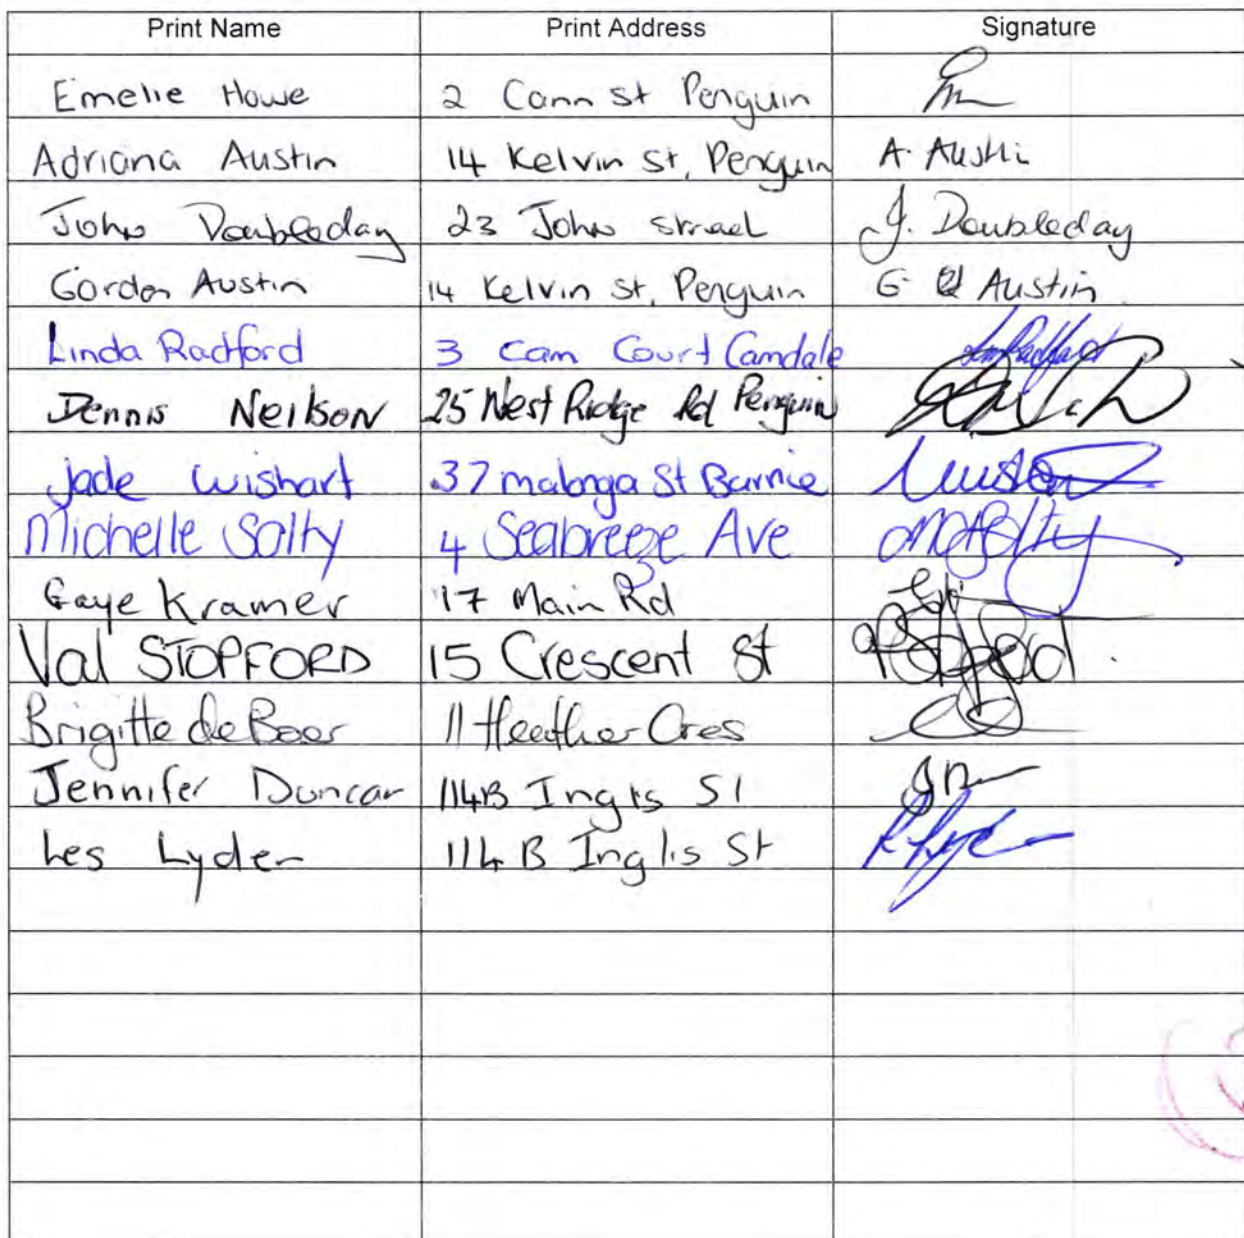 Print Name Print Address Signature
Emelie Howe 2 Cann St Penguin
Adriana Austin 14 Kelvin St, Penguin A. Austin
John Doubleday 23 John Street J. Doubleday
Gordon Austin 14 Kelvin St, Penguin G Austin
Linda Radford 3 Cam Court Camdale
Dennis Neilson 25 West Ridge Rd Penguin
Jade Wishart 37 malonga St Burnie
Michelle Salty 4 Seabreeze Ave
Gaye Kramer 17 Main Rd
Val STOPFORD 15 Crescent St
Brigitte de Boer 11 Heather Cres
Jennifer Duncan 114B Inglis St
Les Lyden 114 B Inglis St